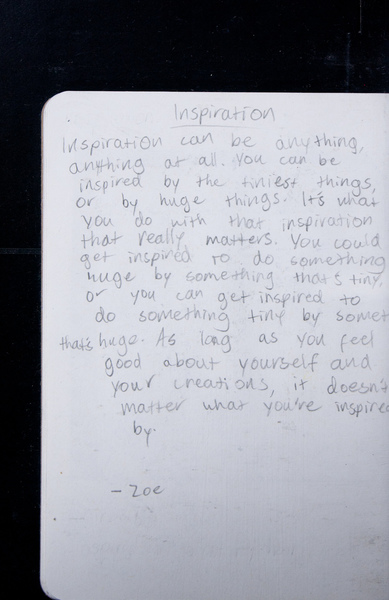 Inspiration
Inspiration can be anything,
anything at all. You can be
inspired by the tiniest things,
or by huge things. It's what
you do with that inspiration
that really matters. You could
get inspired to do something
huge by something that's tiny,
or you can get inspired to
do something tiny by somet
that's huge. As long as you feel
good about yourself and
your creations, it doesn't
matter what you're inspired
by.
- Zoe